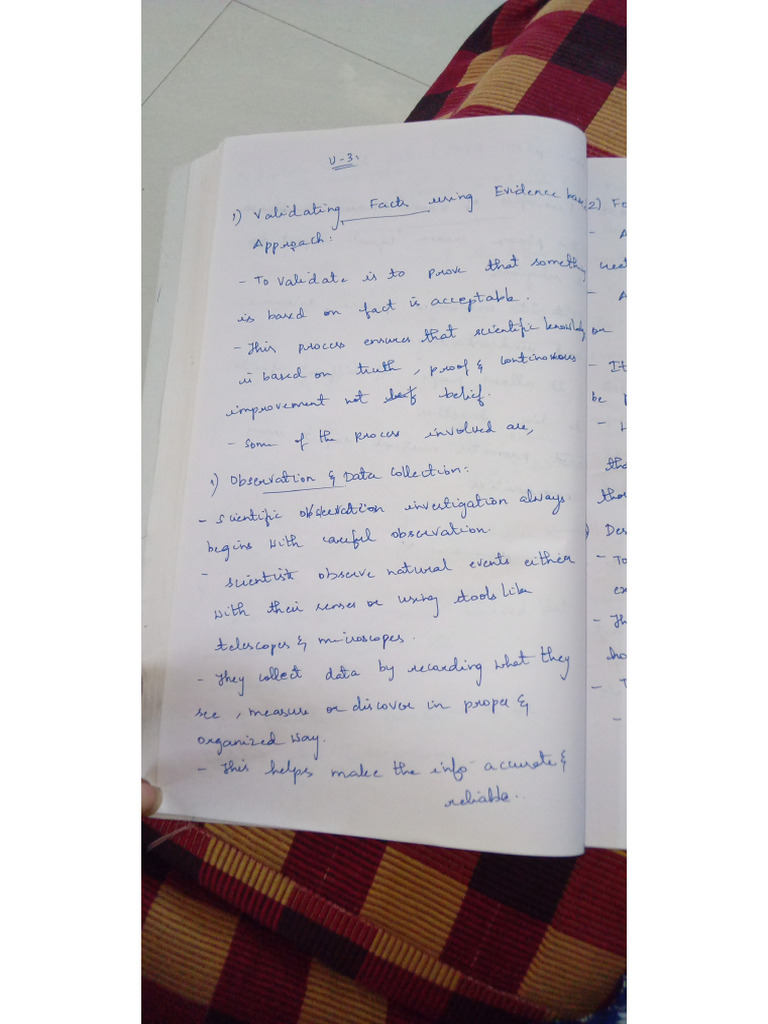 U-3:
1) Validating Facts using Evidence bas
Approach:
- To validate is to prove that somethin
is based on fact is acceptable.
- This process ensures that scientific knowledg
is based on truth, proof & continuous
improvement not belief.
- Some of the process involved are,
1) Observation & Data Collection:
- Scientific observation investigation always
begins with careful observation.
- Scientists observe natural events either
with their senses or using tools like
telescopes & microscopes.
- They collect data by recording what they
see, measure or discover in proper &
organized way.
- This helps make the info accurate &
reliable.
2) Fa
or
- It
be
tha
Des
- To
ex
- Th
ho
- T